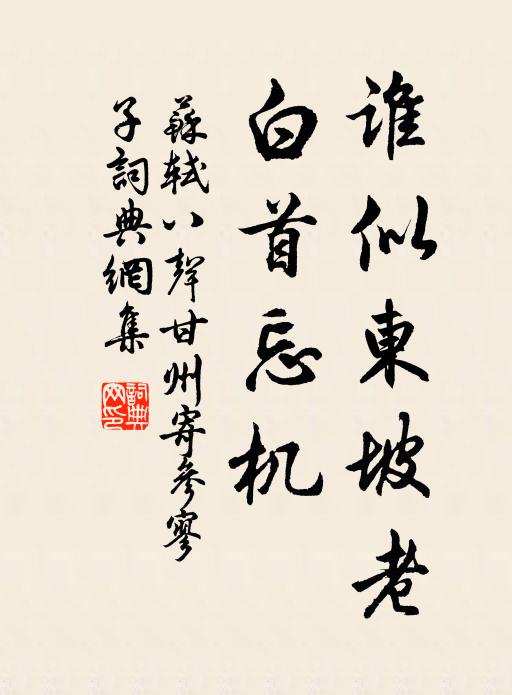 谁似東坡老
白首忘机
蘇軾八聲甘州寄參寥
子詞典網集
詞典网印